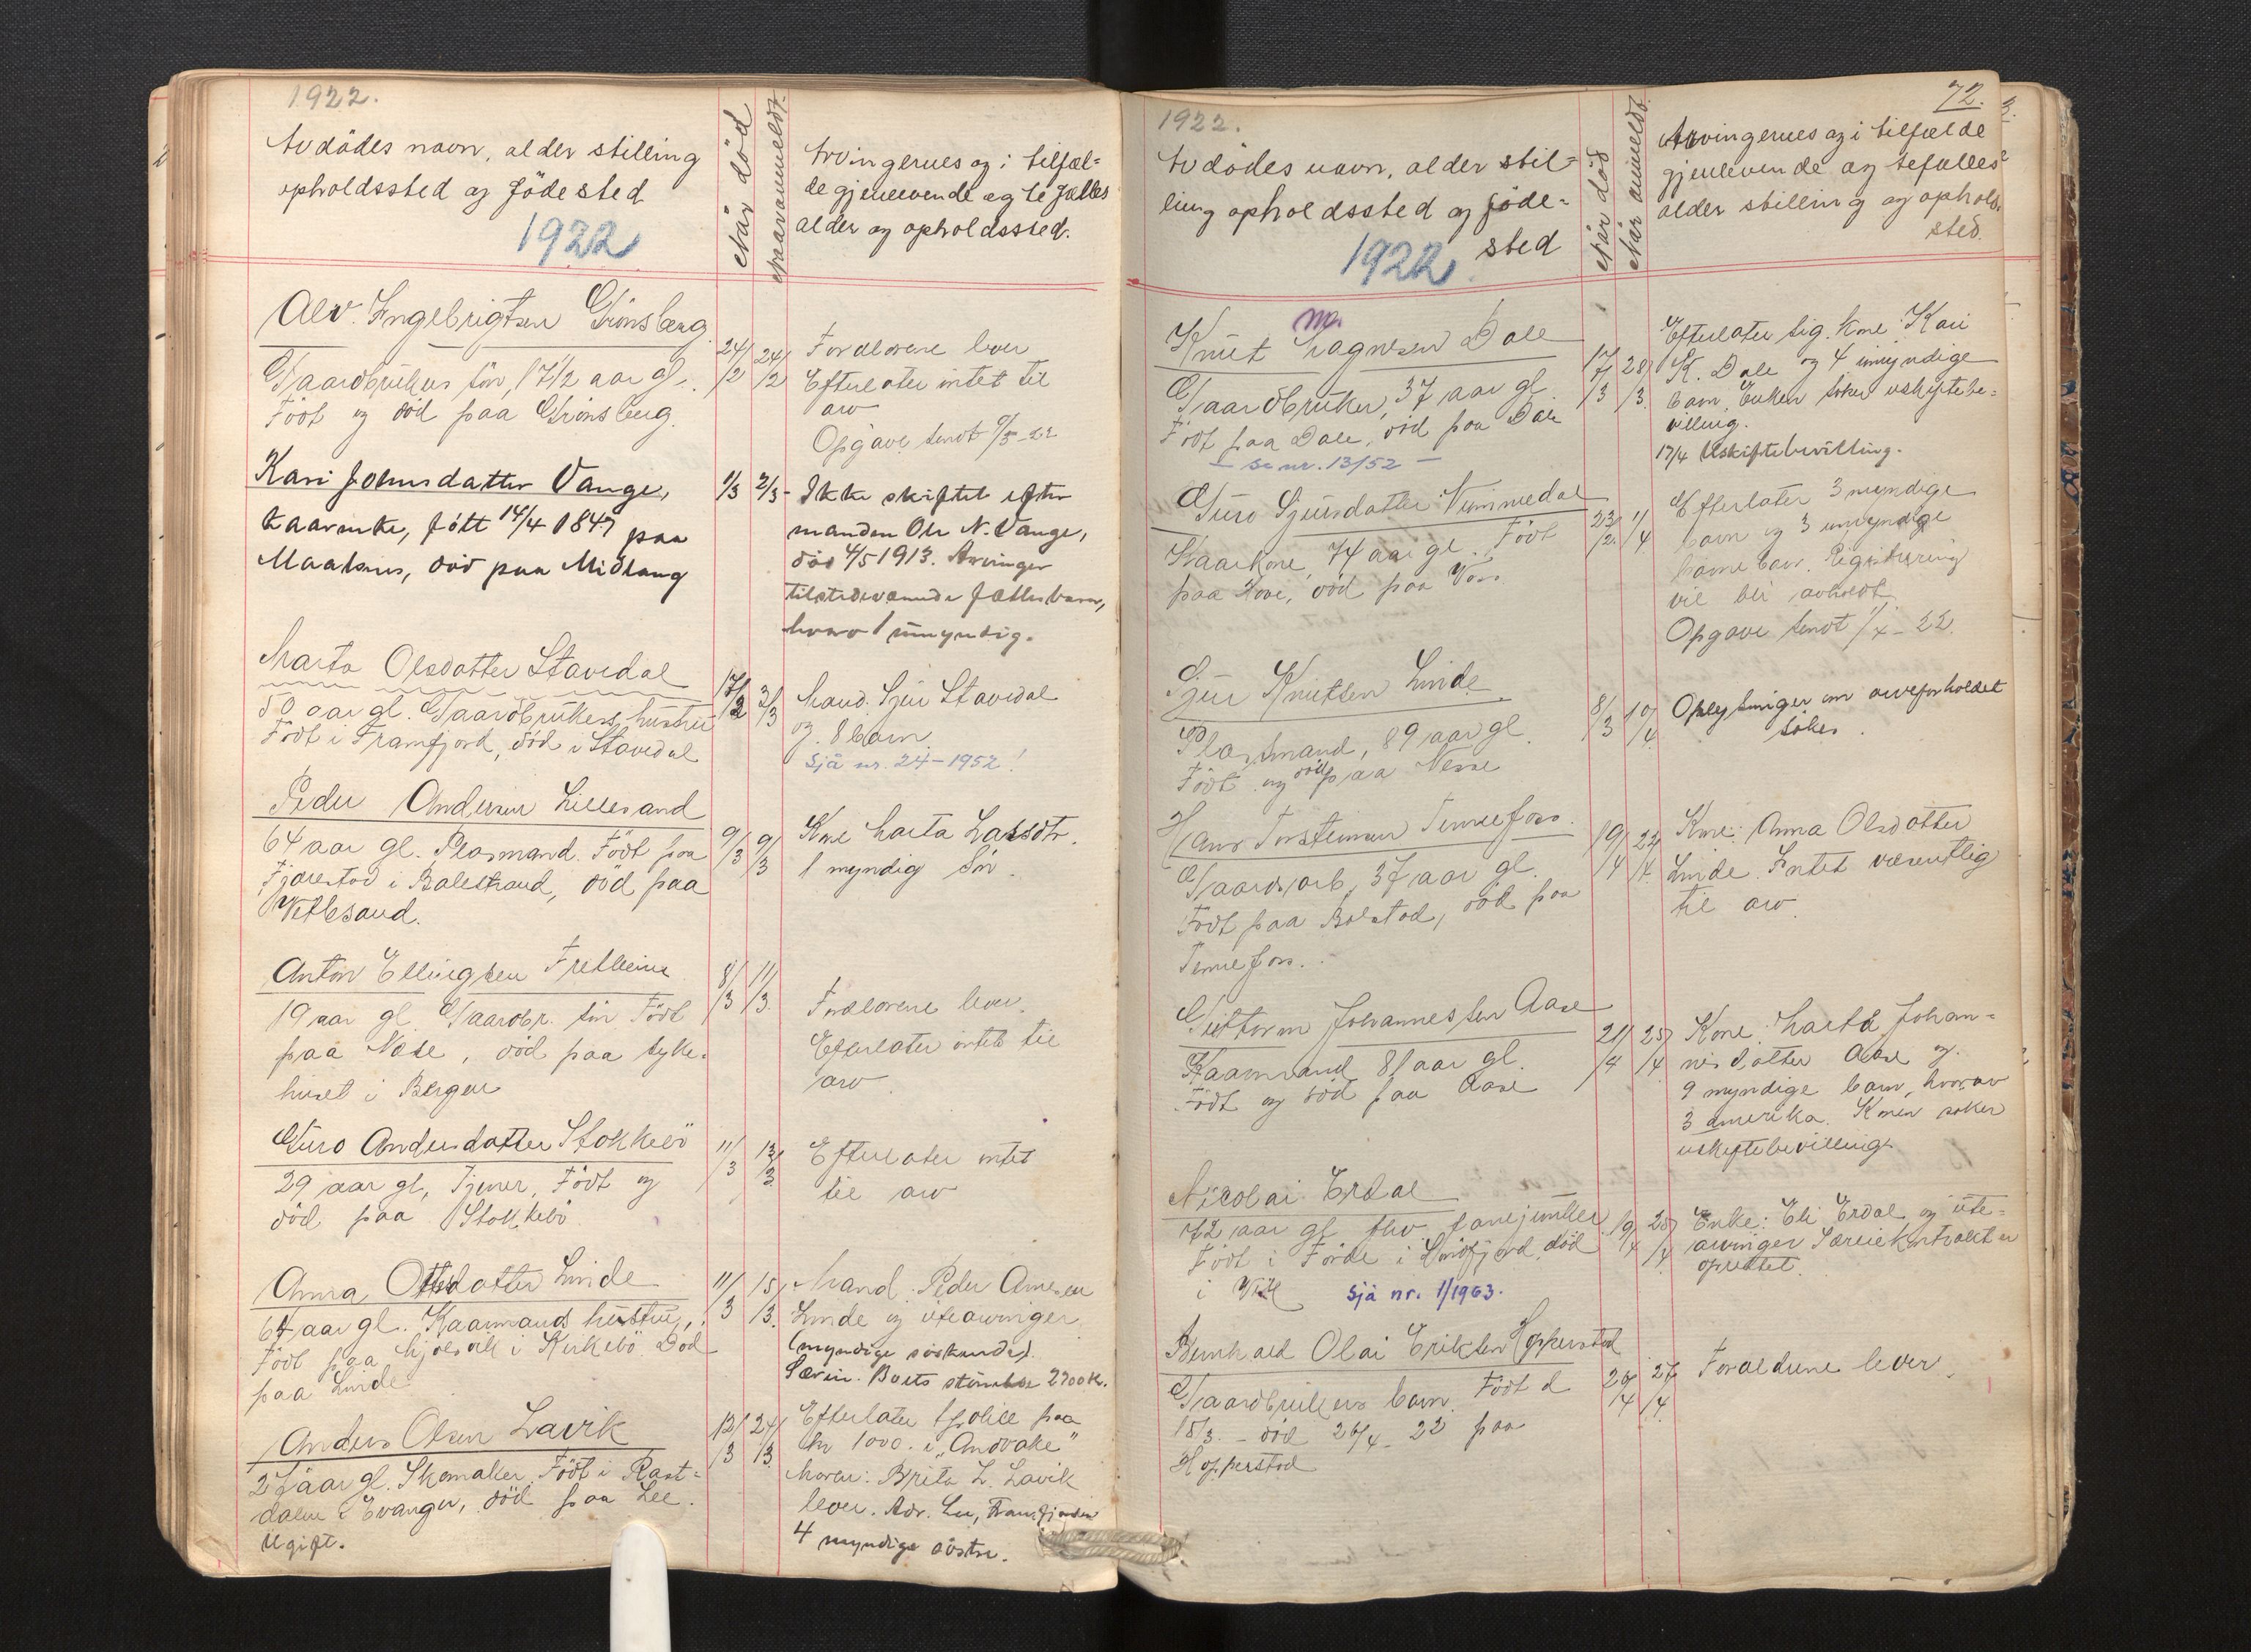 1922.
Avdödes navn, alder stilling
opholdssted og födested
1922
Når död
Naar anmeldt.
Arvingernes og i tilfæl=
de gjenlevende egtefælles
alder og opholdssted.
Alv. Ingebrigtsen Grönsberg
Gaardbrukers sön, 17 1/2 aar gl.
Födt og död paa Grönsberg.
24/2 24/2
Foreldrene lever
Efterlater intet til
arv
Opgave sendt
Kari Johnsdatter Vange,
kaarenke, fött 14/4 1847 paa
Maaknes, död paa Midlang
1/3 2/3
Ikke skiftet efter
manden Ole N. Vange,
död 4/5 1913. Arvinger
tilstedeværende fællesbarn,
hvorav 1 umyndig.
Marta Olsdatter Stavedal
50 aar gl. Gaardbrukers hustru
Födt i Framfjord, död i Stavedal
17/2 3/3
Mand. Sjur Stavedal
og 8 barn
Sjå nr. 24-1952!
Peder Andersen Lillesand
64 aar gl. Plasmand. Födt paa
Fjærestad i Balestrand, död paa
Vetlesand.
9/3 9/3
Kone Marta Larsdtr.
1 myndig sön.
Anton Ellingsen Fretheim
19 aar gl. Gaardbr. sön Födt
paa Nese, död paa syke=
huset i Bergen
8/3 11/3
Foreldrene lever.
Efterlater intet til
arv
Guro Andersdatter Stokkebö
29 aar gl, Tjener, Födt og
död paa Stokkebö
11/3 13/3
Efterlater intet
til arv
Anna Ottesdatter Linde
64 aar gl. Kaarmands hustru,
Födt paa Hjelsvik i Kirkebö. Död
paa Linde
11/3 15/3
Mand. Peder Arnesen
Linde og utearvinger
(myndige söskende).
Særeie. Boets störrelse 2700 kr.
Anders Olsen Lavik
27 aar gl. Skomaker. Födt i Rast=
dalen i Evanger, död paa Lee.
Ugift.
12/3 24/3
Efterlater 1 police paa
kr 1000. i "Andvake"
Moren: Brita L. Lavik
lever. Adr. Lee, Framfjorden
4 myndige söstre.
72.
1922.
Avdödes navn, alder stil=
ling opholdssted og föde=
sted
1922
Når död
Når anmeldt.
Arvingernes og i tilfælde
gjenlevende egtefælles
alder stilling og opholds
sted.
Knut Magnesen Dale
Gaardbruker, 37 aar gl
Födt paa Dale, död paa Dale
- se nr. 13/52 -
17/3 28/3
Efterlater sig. kone: Kari
K. Dale og 4 umyndige
barn. Enken söker uskiftebe=
villing.
17/4 Uskiftebevilling.
Guro Sjursdatter Nummedal
Kaarkone, 74 aar gl. Födt
paa Hove, död paa Voss.
23/2 1/4
Efterlater 3 myndige
barn og 3 umyndige
barnebarn. Registrering
vil bli avholdt
Opgave sendt 1/x - 22.
Sjur Knutsen Linde
Plasmand, 89 aar gl.
Födt og död paa Nesse
8/3 10/4
Oplysninger om arveforholdet
sökes.
Hans Torsteinsen Tennefoss.
Gaardsarb, 37 aar gl.
Födt paa Bolstad, död paa
Tennefoss.
19/4 22/4
Kone: Anna Olsdatter
Linde. Intet væsentlig
til arv.
Guttorm Johannessen Aase
Kaarmand 81 aar gl.
Födt og död paa Aase
21/4 25/4
Kone: Marta Johan=
nesdatter Aase og
9 myndige barn, hvorav
3 Amerika. Konen söker
uskiftebevilling
Nicolai Erdal
72 aar gl fhv fanejunker
Födt i Förde i Söndfjord, död
i Vik
Sjå nr. 1/1963.
19/4 28/4
Enke: Eli Erdal og ute=
arvinger Særeiekontrakt er
oprettet.
Bernhard Olai Eriksen Hopperstad
Gaardbrukers barn. Födt d
15/3. - död 26/4 - 22 paa
Hopperstad
26/4 27/4
Foreldrene lever.